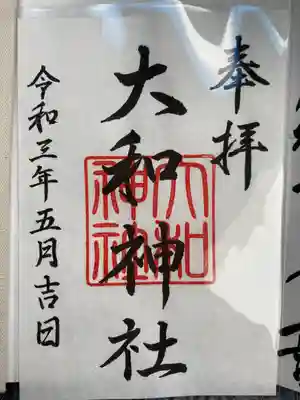 奉拝
大和神社
大和神社
令和三年五月吉日